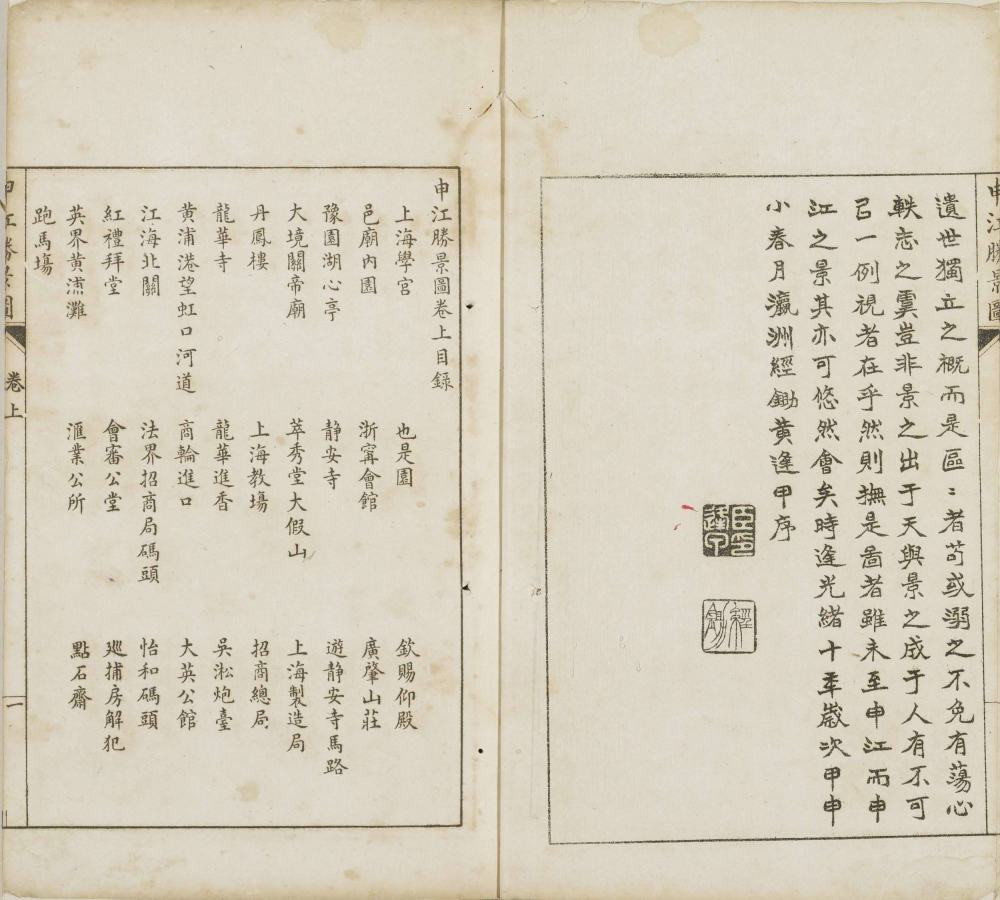 申江勝景圖
遺世獨立之概而是區〻者苟或溺之不免有蕩心
軼志之虞豈非景之出于天與景之成于人有不可
㠯一例視者在乎然則撫是啚者雖未至申江而申
江之景其亦可悠然會矣時逢光緒十年歲次甲申
小春月瀛洲經鋤黃逢甲序
臣印逢甲
經鋤
申江勝景圖卷上目錄
上海學宮
也是園
欽賜仰殿
邑廟內園
浙甯會館
廣肇山莊
豫園湖心亭
静安寺
遊静安寺馬路
大境關帝廟
萃秀堂大假山
上海製造局
丹鳳樓
上海教塲
招商總局
龍華寺
龍華進香
吳淞炮臺
黄浦港望虹口河道
商輪進口
大英公館
江海北關
法界招商局碼頭
怡和碼頭
紅禮拜堂
會審公堂
巡捕房解犯
英界黄浦灘
滙業公所
點石齋
跑馬塲
申江勝景圖
卷上
一